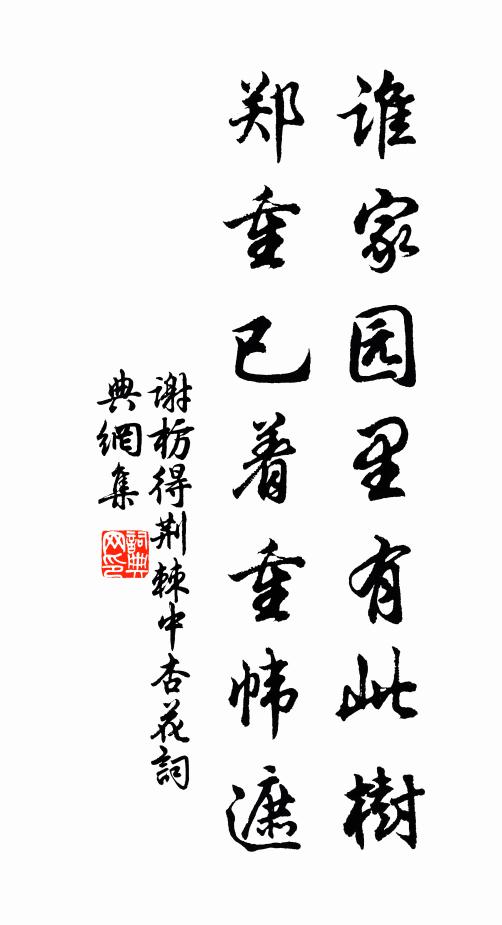 谁家园里有此樹
郑重已着重帏遮
谢枋得荆棘中杏花詞
典網集
詞典
网印